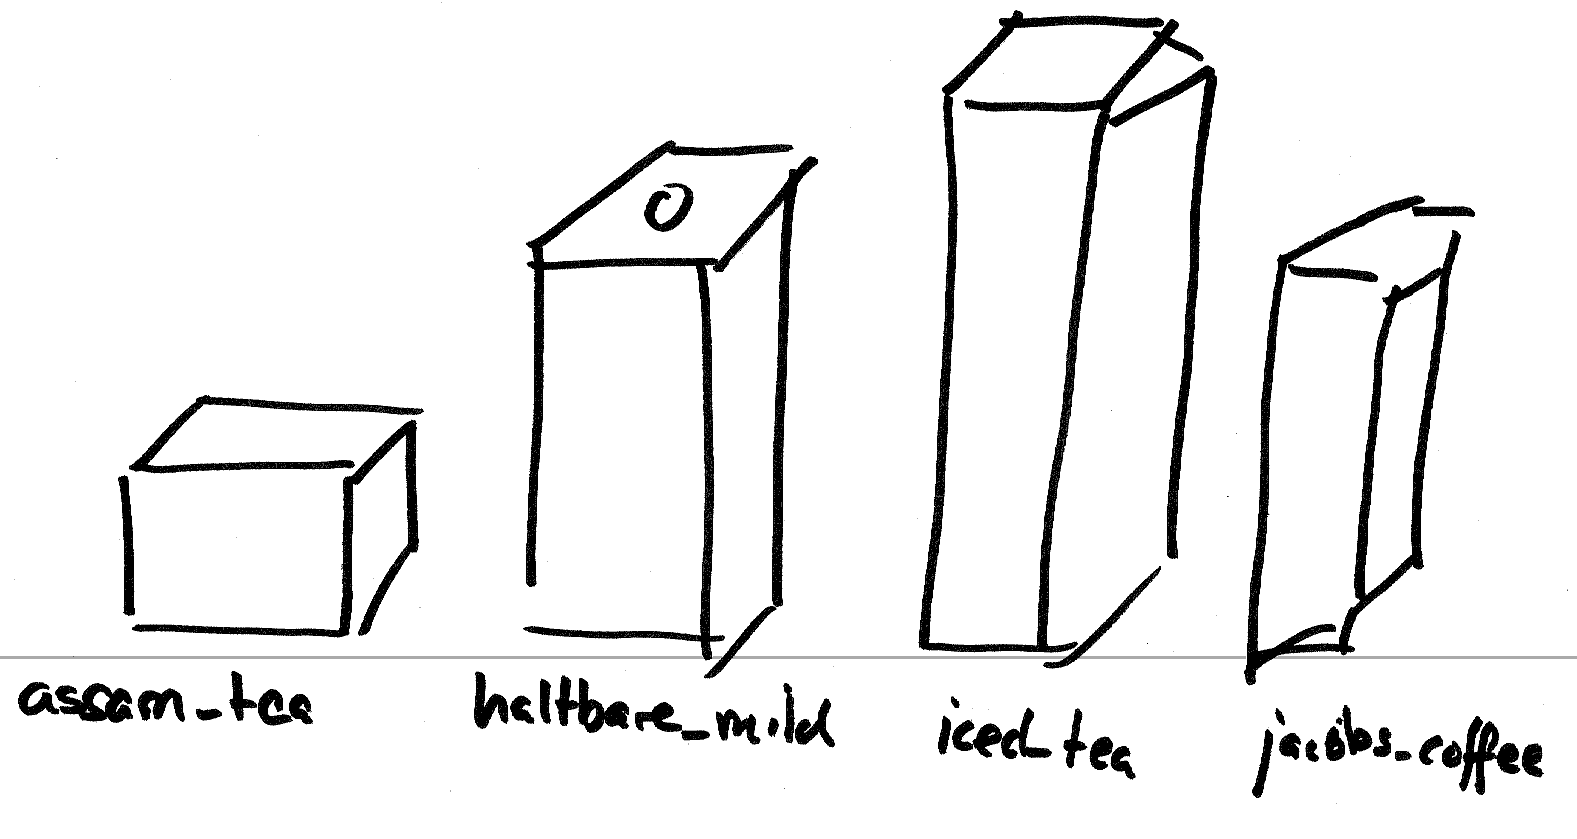 assam_tea haltbare_mild iced_tea jacobs_coffee